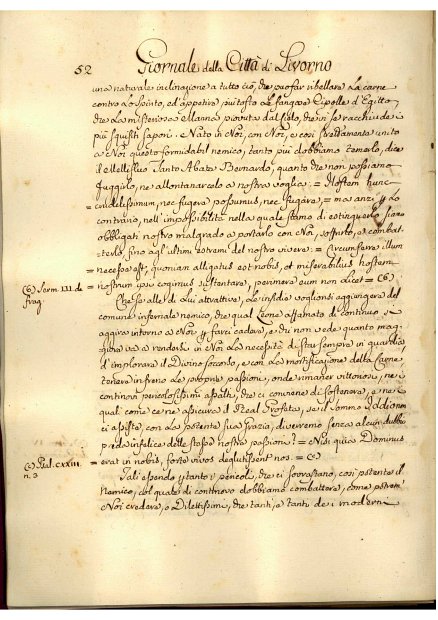 52 Giornale della Città di Livorno
una naturale inclinazione a tutto ciò, che può far ribellare la carne
contro lo Spirito, ed appetire piutosto le fangose Cipolle d'Egitto,
che la misteriosa Manna piovuta dal Cielo, che in se racchiude i
più squisiti sapori. Nato in Noi, con Noi, e così strettamente unito
a Noi questo formidabil nemico, tanto più dobbiamo temerlo, dice
il Mellifluo Santo Abate Bernardo, quanto che non possiamo
fuggirlo, ne allontanarcelo a nostra voglia: = Hostem hunc
= crudelissimum, nec fugere possumus, nec fugare, = ma anzi per lo
contrario, nell'impossibiltà nella quale siamo di estinguerlo, siamo
obbligati nostro malgrado a portarlo con Noi, soffrirlo, e combat-
terlo, fino agl'ultimi estremi del nostro vivere: = Circumferre illum
= necesse est, quoniam alligatus est nobis, et miserabilius hostem
(b) Serm. III. de = nostrum ipsi cogimur sustentare, perimere eum non licet = (b)
frag.
Che se alle di Lui attrattive, le insidie vogliansi aggiungere del
comune infernale nemico, che qual Leone affamato di continuo si
aggira intorno a Noi per farci cadere, e chi non vede quanto mag-
giore va a rendersi in Noi la necessità di star sempre in guardia
d'implorare il Divino soccorso, e con la mortificazione della Carne
tenere in freno le proprie passioni, onde rimaner vittoriosi, ne i
continovi pericolosissimi assalti, che ci conviene di sostenere, e ne i
quali come ce ne assicura il Real Profeta, se il Sommo Iddio non
ci assiste, con la potente sua Grazia, diverremo senza alcun dubbio
preda infelice delle stesse nostre passioni? = Nisi quia Dominus
(c) Psal. CXXIII. = erat in nobis, forte vivos deglutissent nos. = (c)
n. 3
Tali essendo, e tanti i pericoli, che ci sovrastano, così potente il
Nemico, col quale di continovo dobbiamo combattere, come potremo
Noi credere, o Dilettissimi, che tanti, e tanti de i moderni